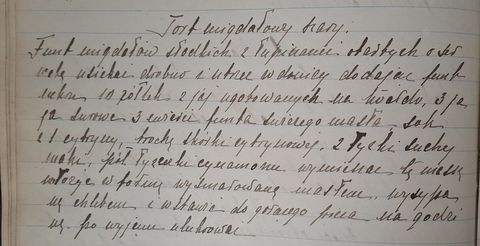 Tort migdałowy szary.
Funt migdałów słodkich z łupinami obartych o ser
wetę usiekać drobno i utrzeć w donicy dodając funt
cukru 10 żółtek z jaj ugotowanych na twardo, 3 ja
ja surowe 3 ćwierci funta świeżego masła sok
z 1 cytryny, trochę skórki cytrynowej, 2 łyżki suchej
mąki, pół łyżeczki cynamonu wymieszać tę massę
włożyć w formę wysmarowaną masłem, wysypa
ną chlebem i wstawić do gorącego pieca na godzi
nę po wyjęciu ulukrować